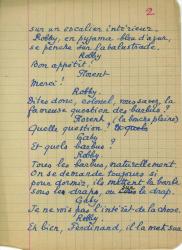 2
sur un escalier intérieur.
Robby, en pyjama bleu d'azur,
se penche sur la balustrade.
Robby
Bon appétit !
Florent
Merci !
Robby.
Dites donc, colonel, vous savez, la
fameuse question des barbus ?
Florent, (la bouche pleine)
Quelle question ?
Gaby
Et quels barbus ?
Robby.
Tous les barbus, naturellement.
On se demande toujours si
pour dormir, ils mettent la barbe
sous les draps, ou sur le drap.
Gaby
Je ne vois pas l'intérêt de la chose.
Robby
Eh bien, Ferdinand, il la met sur